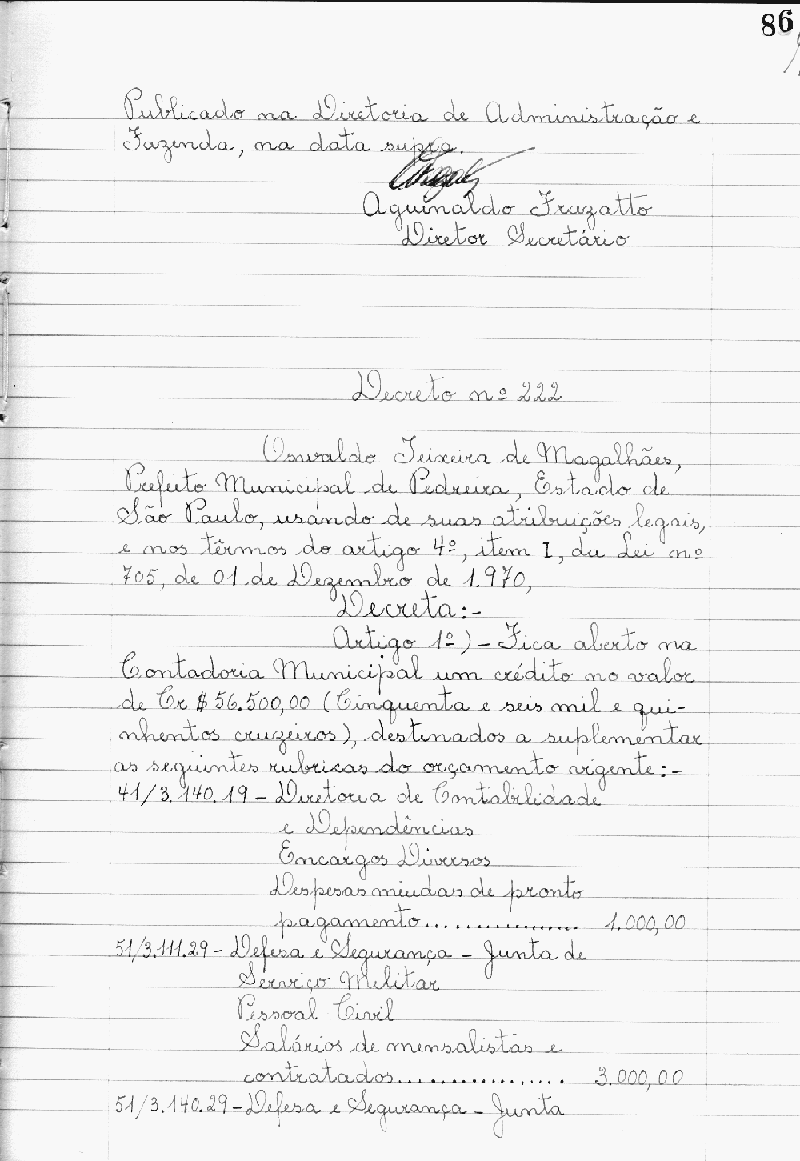 86
Publicado na Diretoria de Administração e
Fazenda, na data supra.
Aguinaldo Fruzatto
Diretor Secretário
Decreto nº 222
Oswaldo Teixeira de Magalhães,
Prefeito Municipal de Pedreira, Estado de
São Paulo, usando de suas atribuições legais,
e nos têrmos do artigo 4º, item I, da Lei nº
705, de 01 de Dezembro de 1.970,
Decreta:-
Artigo 1º) - Fica aberto na
Contadoria Municipal um crédito no valor
de Cr $ 56.500,00 (Cinquenta e seis mil e qui-
nhentos cruzeiros), destinados a suplementar
as seguintes rubricas do orçamento vigente:-
41/3.140.19 - Diretoria de Contabilidade
e Dependências
Encargos Diversos
Despesas miudas de pronto
pagamento................ 1.000,00
51/3.111.29 - Defesa e Segurança - Junta de
Serviço Militar
Pessoal Civil
Salários de mensalistas e
contratados................. 3.000,00
51/3.140.29 - Defesa e Segurança - Junta